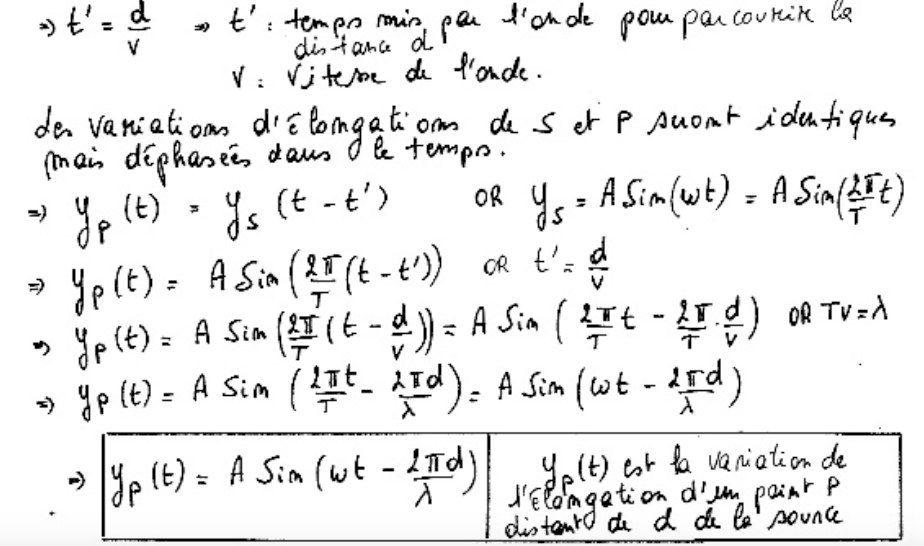 ⇒ t' = d/v ⇒ t' : temps mis par l'onde pour parcourir la
distance d
v : vitesse de l'onde.
des variations d'élongations de S et P seront identiques
mais déphasées dans le temps.
⇒ y_P(t) = y_S(t - t') OR y_S = A Sin(ωt) = A Sin(2π/T t)
⇒ y_P(t) = A Sin(2π/T (t - t')) OR t' = d/v
⇒ y_P(t) = A Sin(2π/T (t - d/v)) = A Sin(2π/T t - 2π/T · d/v) OR TV = λ
⇒ y_P(t) = A Sin(2πt/T - 2πd/λ) = A Sin(ωt - 2πd/λ)
⇒ y_P(t) = A Sin(ωt - 2πd/λ)
y_P(t) est la variation de
l'élongation d'un point P
distant de d de la source